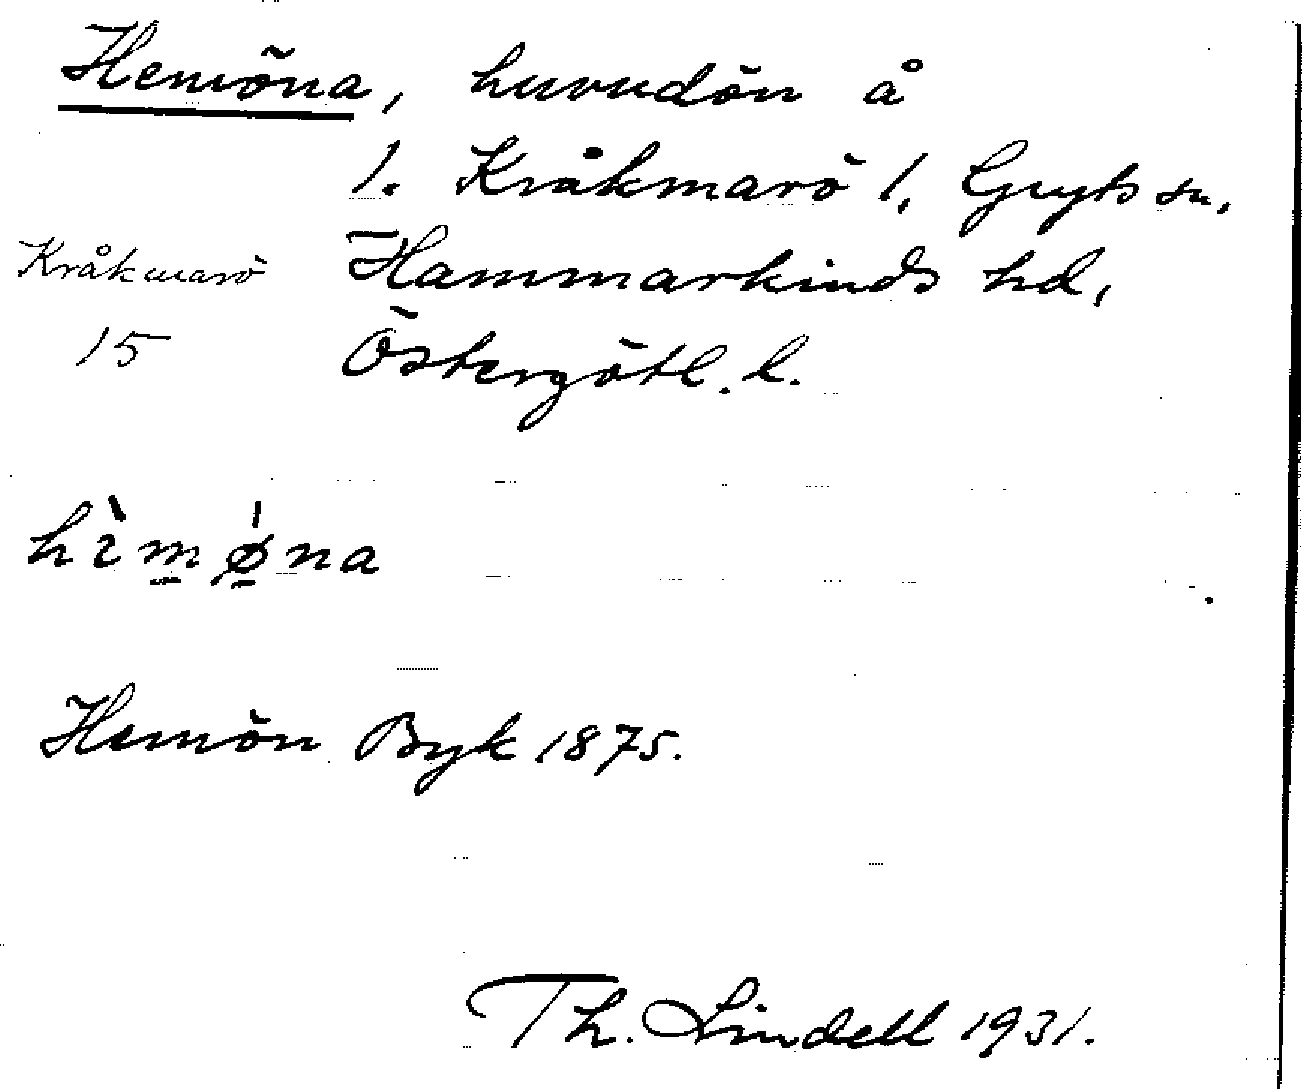 Hemöna, huvudön å
1. Kråkmarö 1, Gryts sn,
Kråkmarö Hammarkinds hd,
15 Östergötl. l.
hìmø̀na
Hemön Byk 1875.
Th. Lindell 1931.